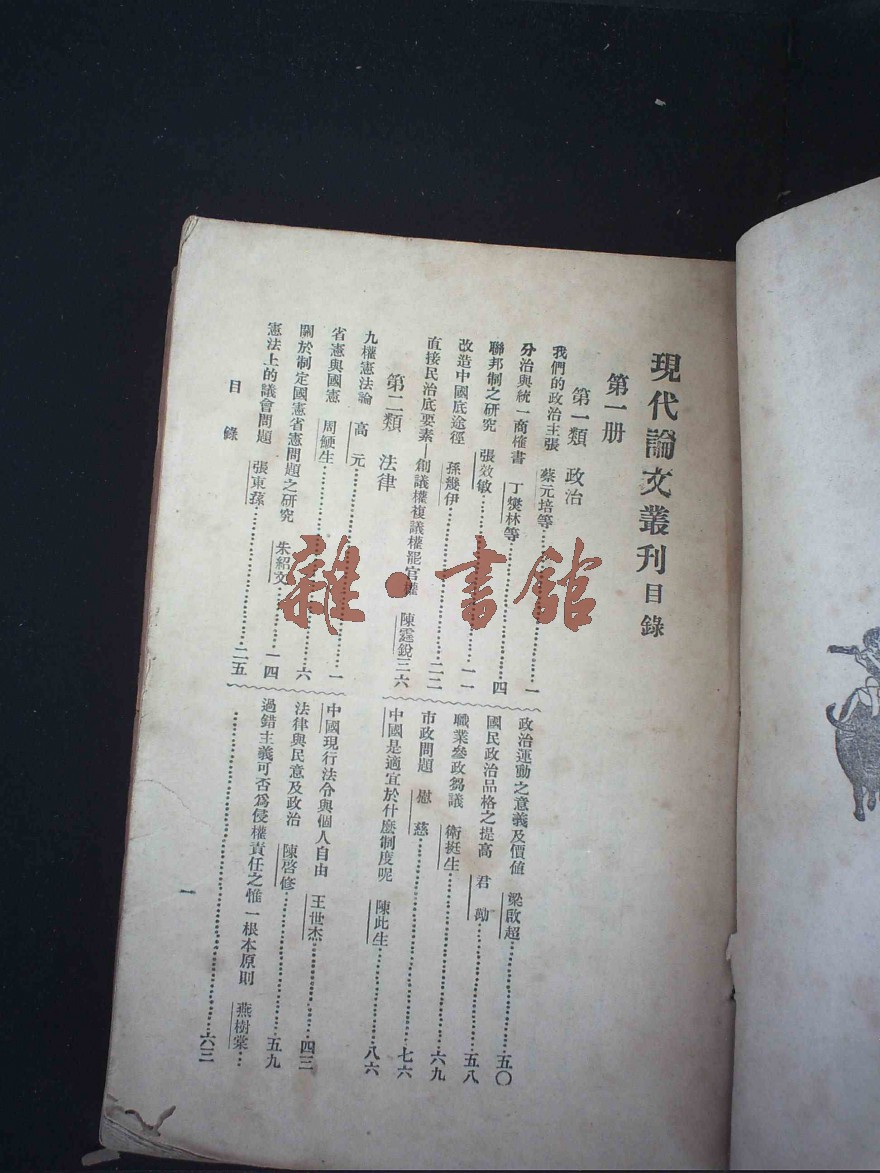 現代論文叢刊目錄
第一册
第一類 政治
我們的政治主張 蔡元培等…一
分治與統一商榷書 丁燮林等…四
聯邦制之研究 張效敏…一一
改造中國底途徑 孫幾伊…二二
直接民治底要素—創議權複議權罷官權 陳霆銳三六
政治運動之意義及價值 梁啟超…五〇
國民政治品格之提高 君勱…五八
職業參政芻議 衛挺生…六九
市政問題 慰慈…七六
中國是適宜於什麼制度呢 陳此生…八六
第二類 法律
九權憲法論 高元…一
省憲與國憲 周鯁生…六
關於制定國憲省憲問題之研究 朱紹文…一四
憲法上的議會問題 張東蓀…二五
中國現行法令與個人自由 王世杰…四三
法律與民意及政治 陳啓修…五九
過錯主義可否爲侵權責任之惟一根本原則 燕樹棠…
…六三
目錄
一
雜·書館